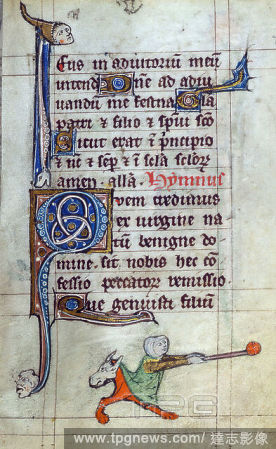 Eus in adiutoriū meū
intend dñe ad adiu
uandū me festina Gla
patri & filio & sp̄ui sc̄o
Sicut erat ī p̄ncipio
& & semp̄ & ī
amen. all̄a. Hymnus
Quem credimus
ex uirgine na
tū benigne do
mine. sit nobis hec cō
fessio remissio.
Que genuisti
TPG
www.tpgnews.com/ 達志影像